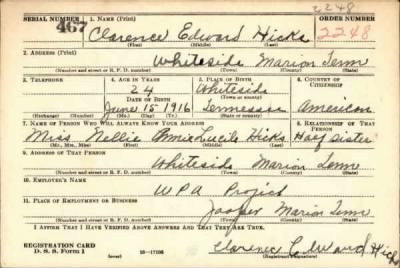 2248
SERIAL NUMBER 1. NAME (Print) ORDER NUMBER
467 Clarence Edward Hicks 2248
(First) (Middle) (Last)
2. ADDRESS (Print)
Whiteside Marion Tenn
(Number and street or R. F. D. number) (Town) (County) (State)
3. TELEPHONE 4. AGE IN YEARS 5. PLACE OF BIRTH 6. COUNTRY OF CITIZENSHIP
24 Whiteside
DATE OF BIRTH (Town or county)
June 15-1916 Tennessee American
(Exchange) (No.) (Mo.) (Day) (Yr.) (State or country)
7. NAME OF PERSON WHO WILL ALWAYS KNOW YOUR ADDRESS 8. RELATIONSHIP OF THAT PERSON
Miss Nellie Annie Lucile Hicks Half sister
(Mr., Mrs., Miss) (First) (Middle) (Last)
9. ADDRESS OF THAT PERSON
Whiteside Marion Tenn
(Number and street or R. F. D. number) (Town) (County) (State)
10. EMPLOYER'S NAME
WPA Project
11. PLACE OF EMPLOYMENT OR BUSINESS
Jasper Marion Tenn
(Number and street or R. F. D. number) (Town) (County) (State)
I AFFIRM THAT I HAVE VERIFIED ABOVE ANSWERS AND THAT THEY ARE TRUE.
REGISTRATION CARD
D. S. S. Form 1 (over) Clarence Edward Hicks
(Registrant's signature)